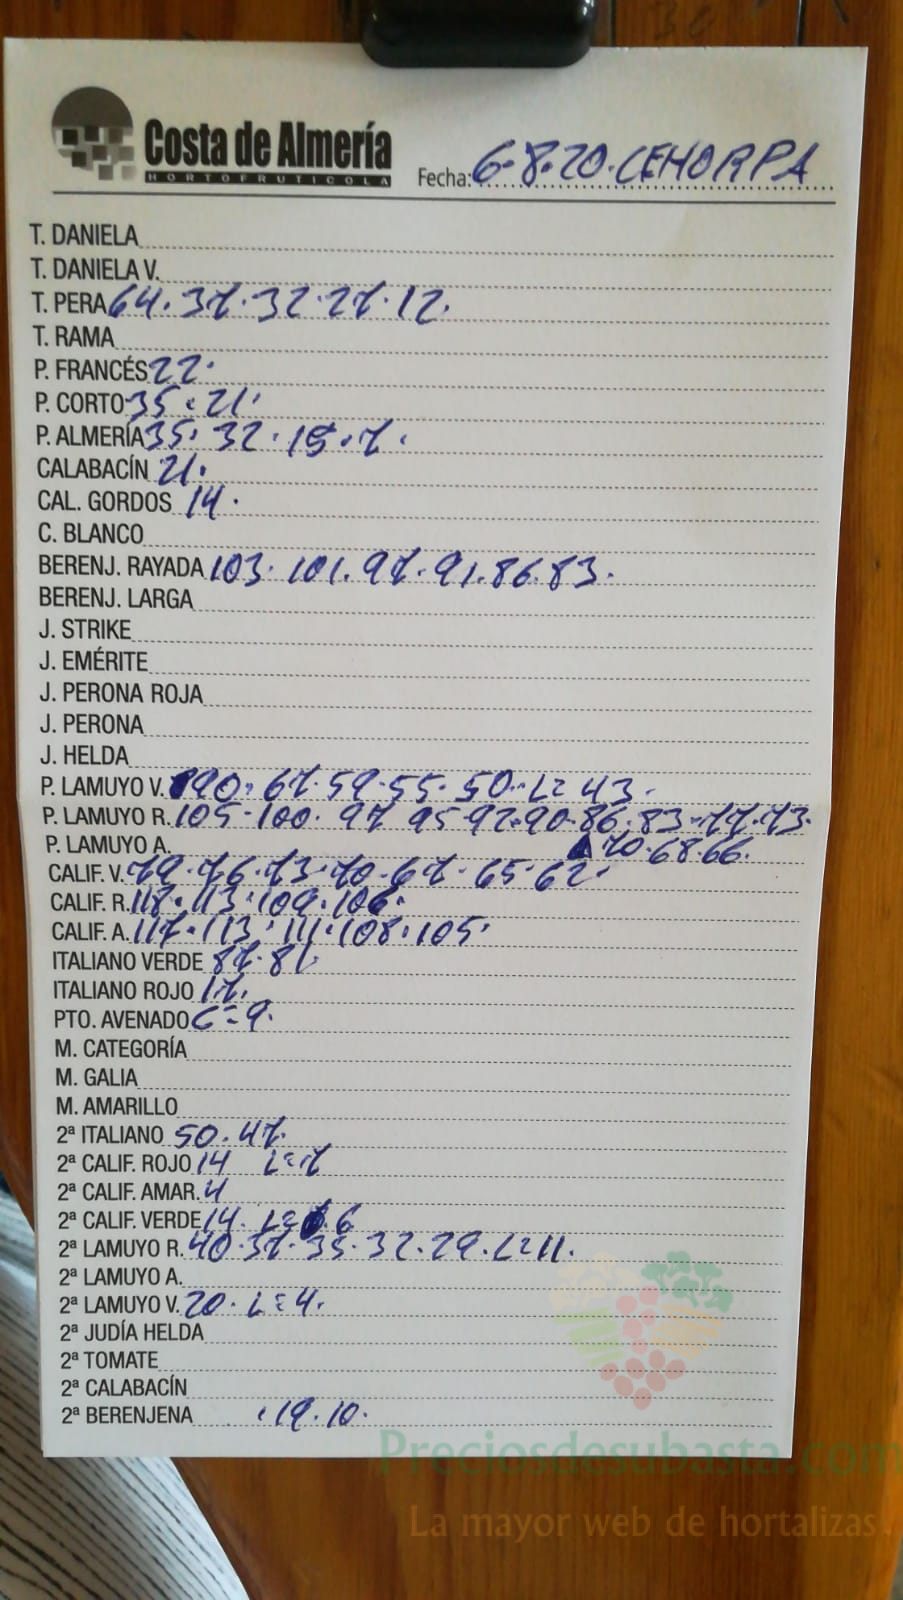 Costa de Almería
HORTOFRUTICOLA
Fecha: 6.8.20. CEHORPA
T. DANIELA
T. DANIELA V.
T. PERA 64. 37. 32. 27. 12.
T. RAMA
P. FRANCÉS 22.
P. CORTO 35. 21.
P. ALMERÍA 35. 32. 15. 7.
CALABACÍN 21.
CAL. GORDOS 14.
C. BLANCO
BERENJ. RAYADA 103. 101. 97. 91. 86. 83.
BERENJ. LARGA
J. STRIKE
J. EMÉRITE
J. PERONA ROJA
J. PERONA
J. HELDA
P. LAMUYO V. 90. 67. 59. 55. 50. L= 43.
P. LAMUYO R. 105. 100. 97 95. 92. 90. 86. 83. 77. 73.
P. LAMUYO A. 70. 68. 66.
CALIF. V. 79. 76. 73. 70. 67. 65. 62.
CALIF. R. 118. 113. 109. 106.
CALIF. A. 117. 113. 111. 108. 105.
ITALIANO VERDE 87. 81.
ITALIANO ROJO 17.
PTO. AVENADO C=9.
M. CATEGORÍA
M. GALIA
M. AMARILLO
2ª ITALIANO 50. 47.
2ª CALIF. ROJO 14 L=7
2ª CALIF. AMAR. 4
2ª CALIF. VERDE 14. L= 6
2ª LAMUYO R. 40. 37. 35. 32. 29. L=11.
2ª LAMUYO A.
2ª LAMUYO V. 20. L=4.
2ª JUDÍA HELDA
2ª TOMATE
2ª CALABACÍN
2ª BERENJENA 19. 10.
Preciosdesubasta.com
La mayor web de hortalizas